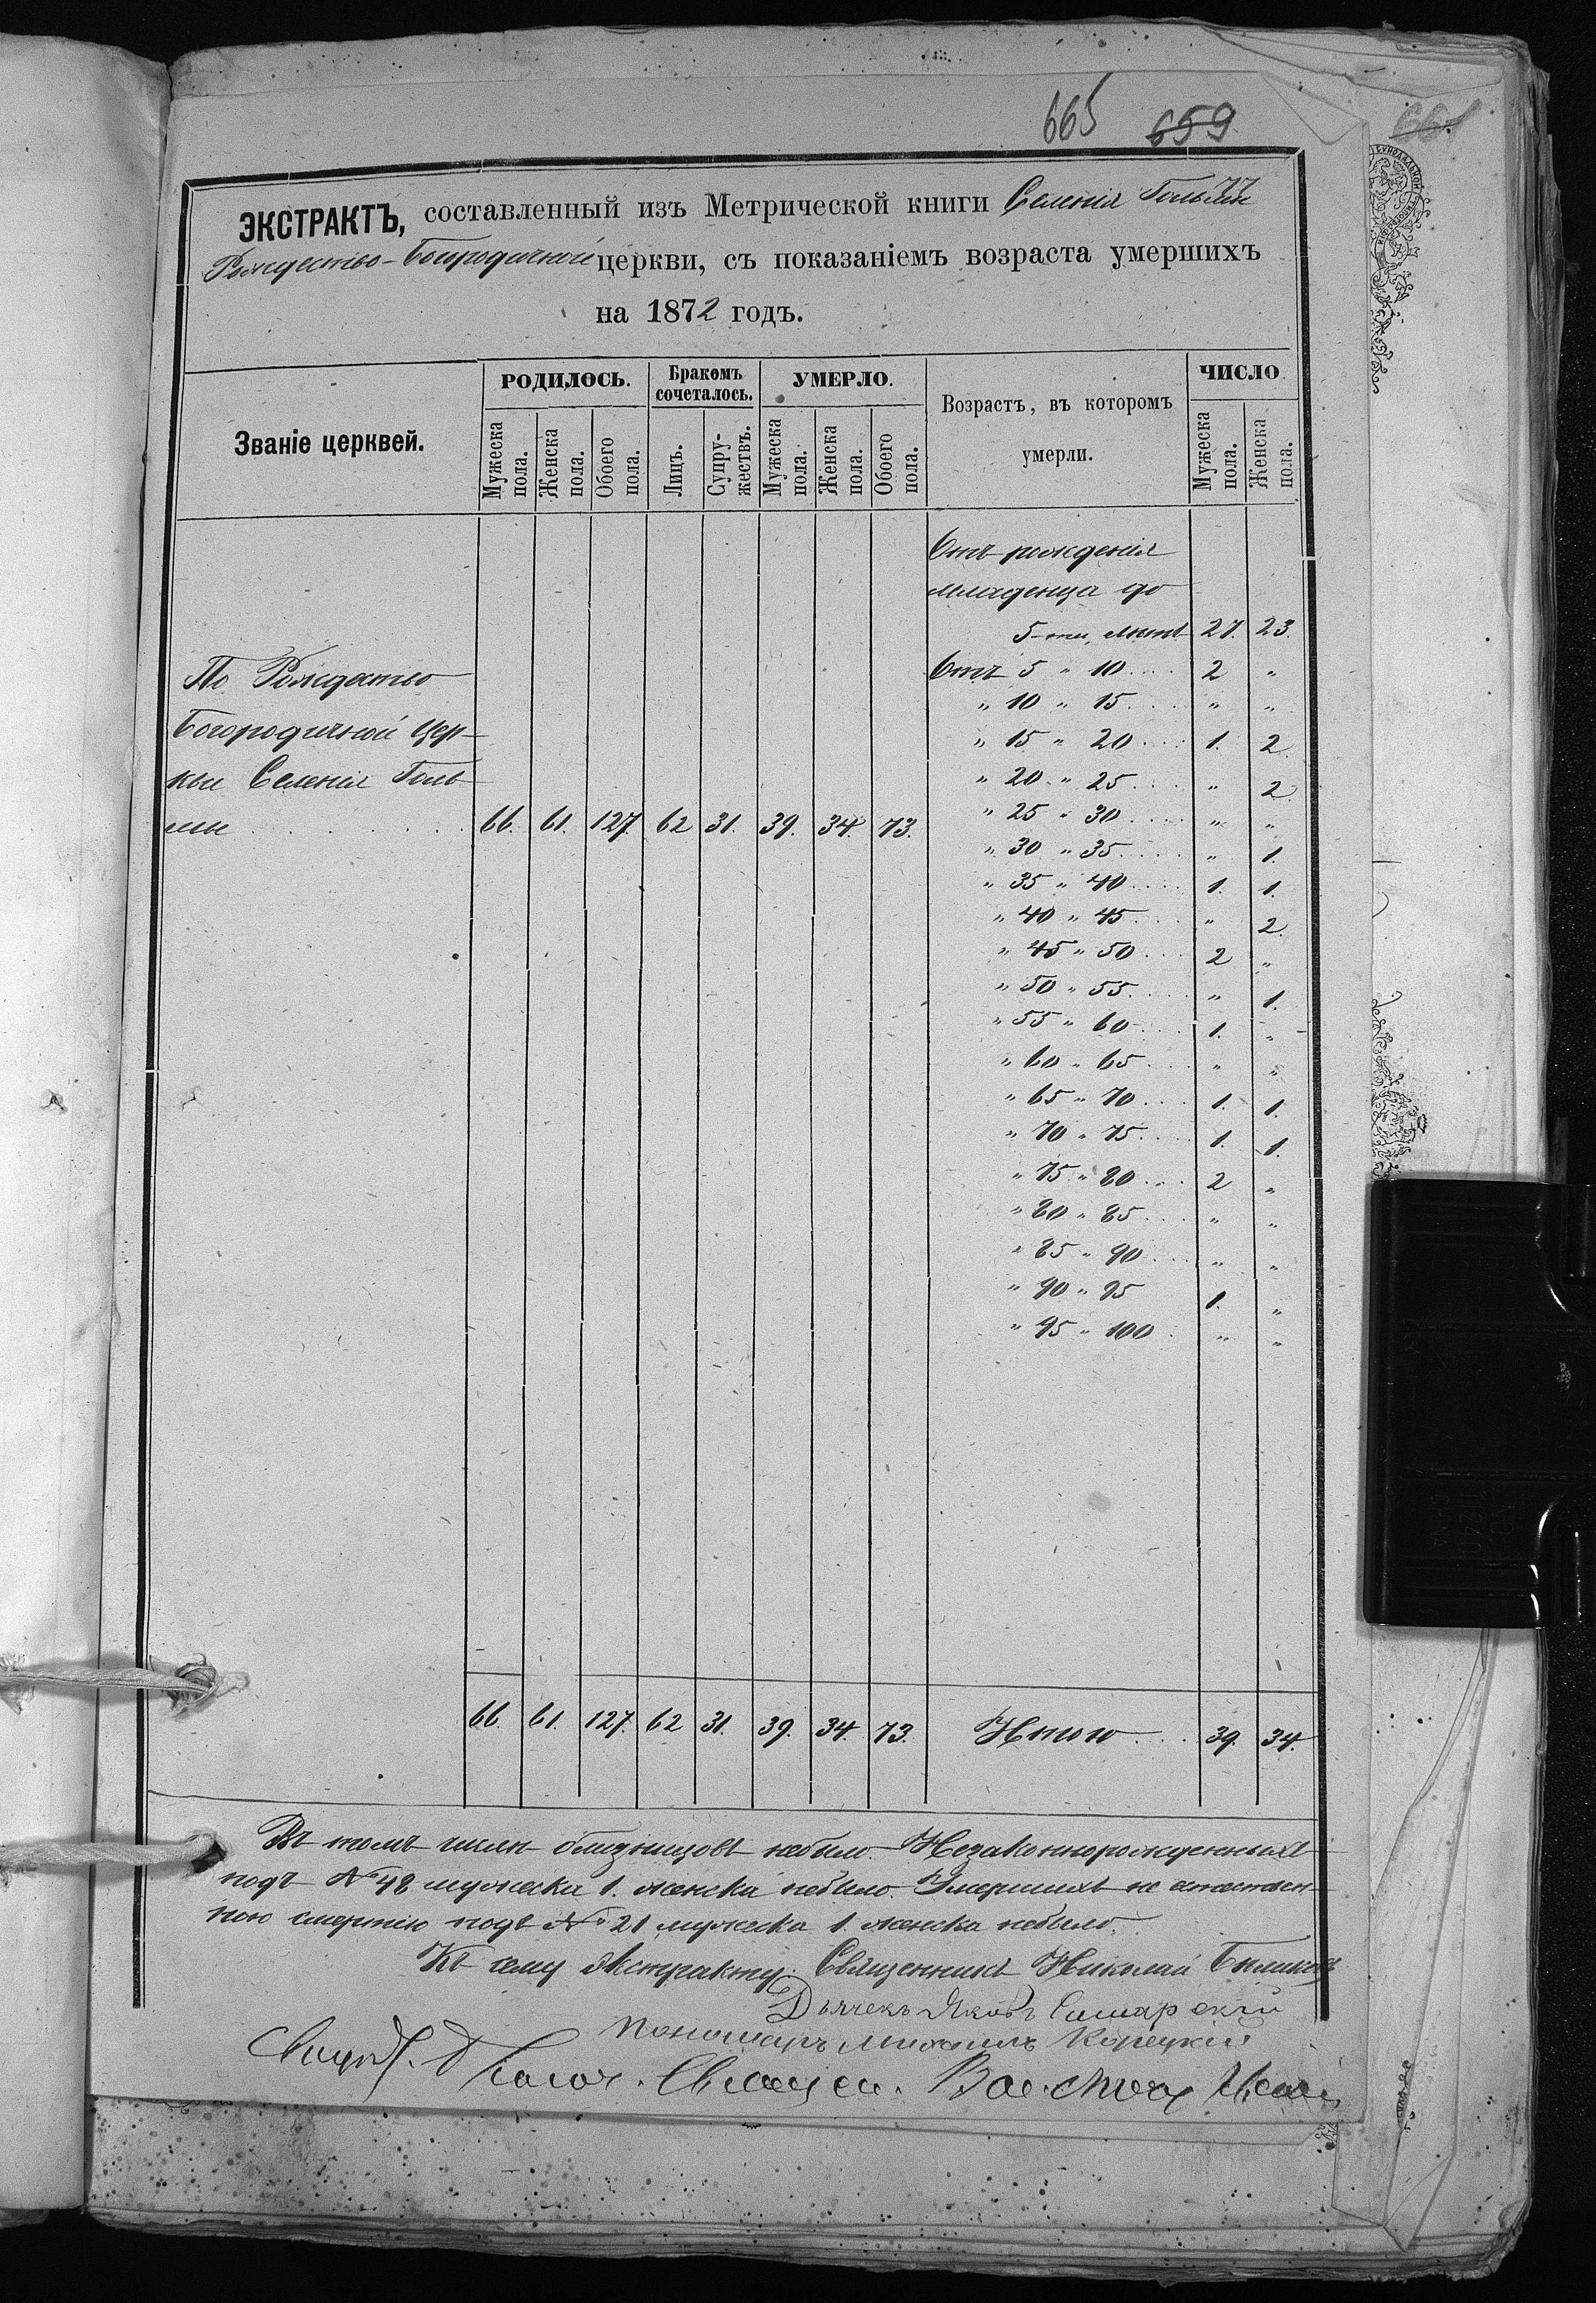 665 659
661
77
ЭКСТРАКТЪ, составленный изъ Метрической книги Селенія Гольмы
Рождество-Богородичной церкви, съ показаніемъ возраста умершихъ
на 1872 годъ.
Званіе церквей.
РОДИЛОСЬ.
Бракомъ сочеталось.
УМЕРЛО.
Возрастъ, въ которомъ умерли.
ЧИСЛО
Мужеска пола.
Женска пола.
Обоего пола.
Лицъ.
Супру-жествъ.
Мужеска пола.
Женска пола.
Обоего пола.
Мужеска пола.
Женска пола.
Отъ рожденія
младенца до
5-ти лѣтъ 27. 23.
Отъ 5 " 10 .... 2 "
" 10 " 15 .... " "
" 15 " 20 .... 1. 2
" 20 " 25 .... " 2.
" 25 " 30 .... " "
" 30 " 35 .... " 1.
" 35 " 40 .... 1. 1.
" 40 " 45 .... " 2.
" 45 " 50 ... 2 "
" 50 " 55 .... " 1.
" 55 " 60 .... 1. "
" 60 " 65 .... " "
" 65 " 70 .... 1. 1.
" 70 " 75 .... 1. 1.
" 75 " 80 .... 2 "
" 80 " 85 .... " "
" 85 " 90 .... " "
" 90 " 95 1. "
" 95 " 100 . " "
По Рождество
Богородичной Цер-
кви Селенія Голь
мы . . . . . . . 66. 61. 127. 62 31. 39. 34. 73.
66. 61. 127. 62 31. 39. 34. 73. Итого ... 39. 34.
Въ томъ числѣ близнецовъ небыло. Незаконнорожденныхъ
подъ № 48 мужеска 1. женска небыло. Умершихъ не естествен-
ною смертію подъ № 21 мужеска 1. женска небыло.
Къ сему Экстракту. Священникъ Николай
Дьячекъ Яковъ Самарскій
Пономарь Михаилъ Корецкій